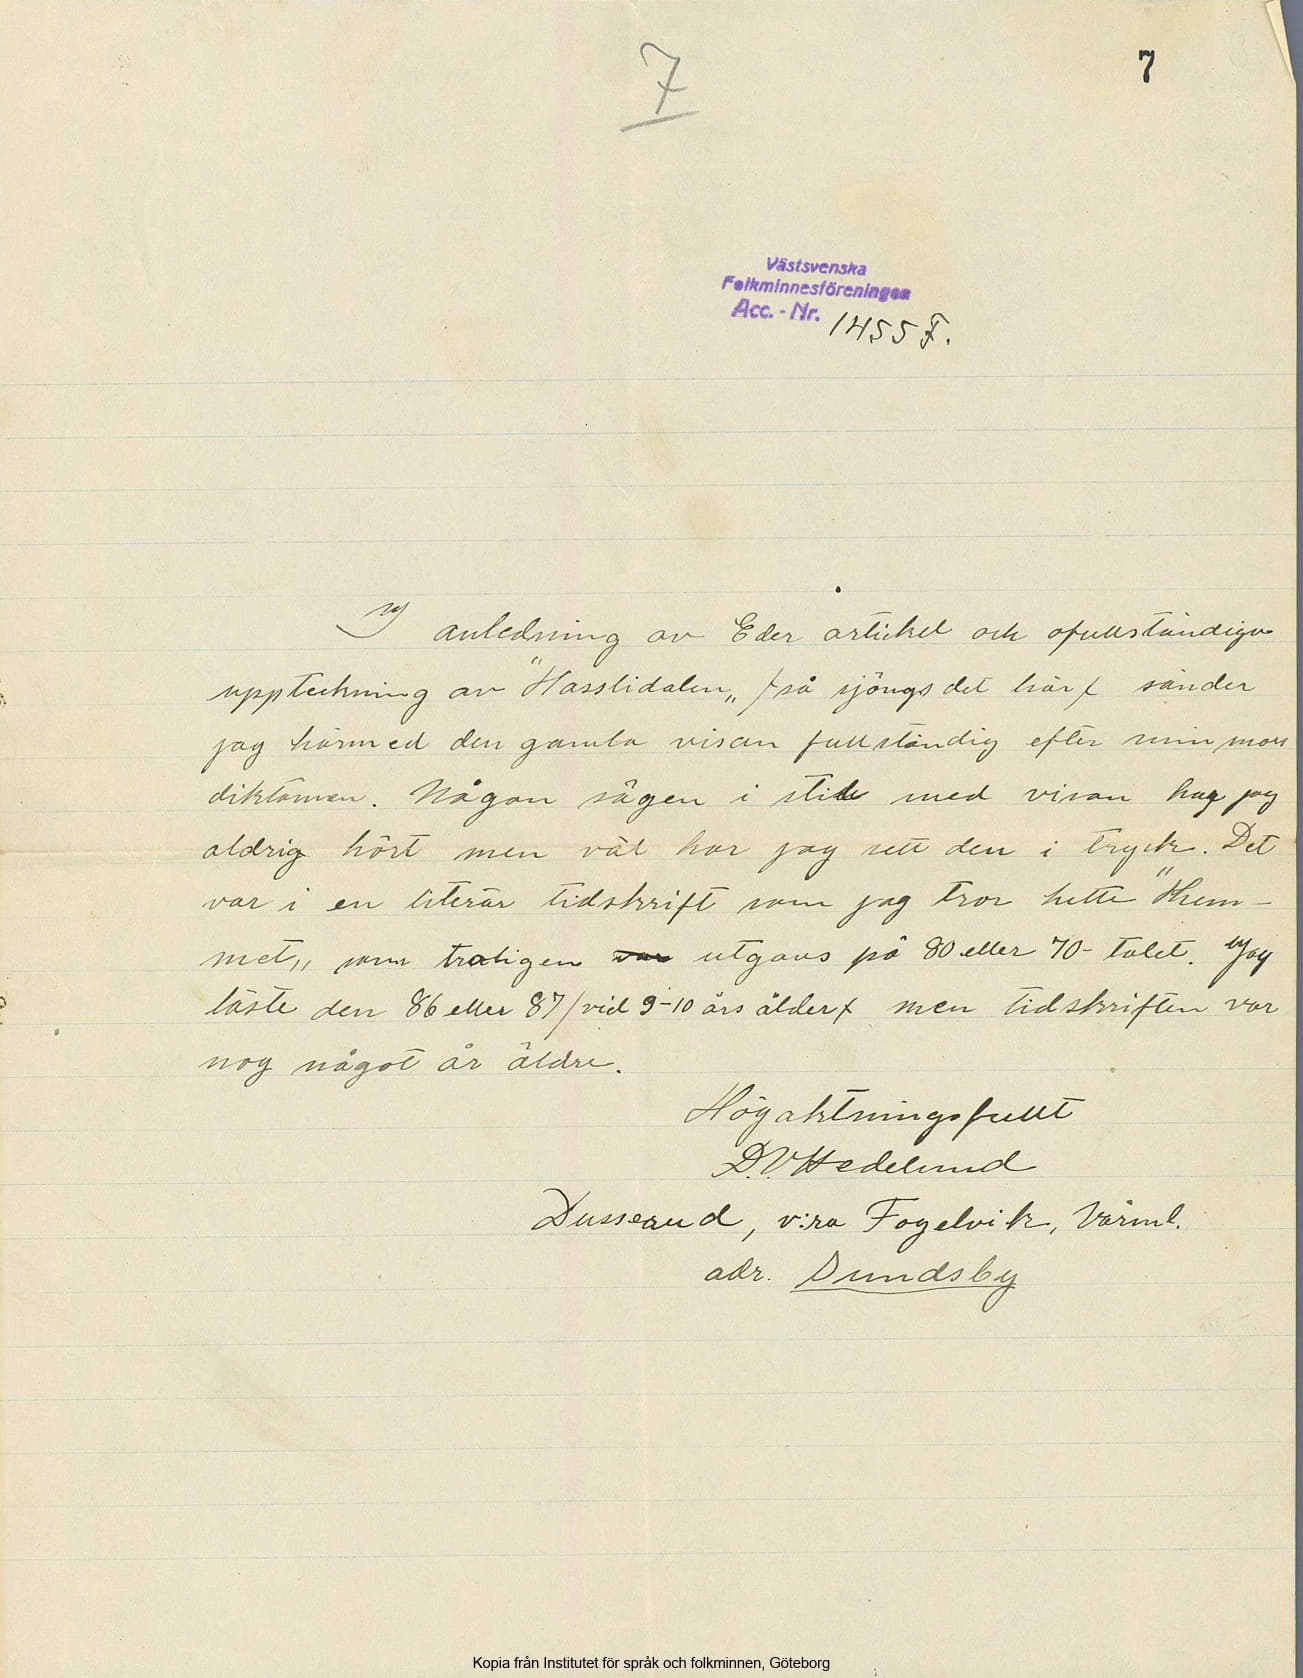 7
7
Västsvenska
Folkminnesföreningen
Acc.-Nr. 1455 F.
I anledning av Eder artickel och ofullständiga
uppteckning av "Hasslidalen„ /så sjöngs det här/ sänder
jag härmed den gamla visan fullständig efter min mors
diktamen. Någon sägen i stil med visan har jag
aldrig hört men väl har jag sett den i tryck. Det
var i en literär tidskrift som jag tror hette "Hem-
met„ som troligen var utgavs på 80 eller 70-talet. Jag
läste den 86 eller 87 /vid 9-10 års ålder/ men tidskriften var
nog något år äldre.
Högaktningsfullt
D.V. Hedelund
Dusserud, v:ra Fogelvik, Värml.
adr. Sundsby
Kopia från Institutet för språk och folkminnen, Göteborg